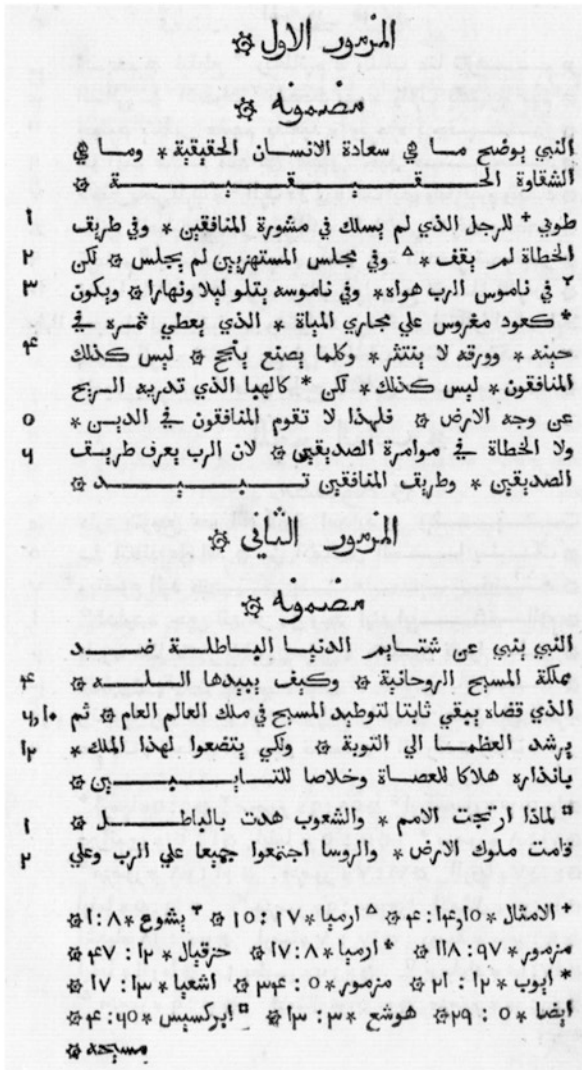 المزمور الاول ۞
مضمونه ۞
النبي يوضح مــا في سعادة الانســان الحقيقية * ومــا في
الشقاوة الحــقــيــقــيــة ۞
طوبي + للرجل الذي لم يسلك في مشورة المنافقين * وفي طريق ١
الخطاة لم يقف * △ وفي مجلس المستهزيين لم يجلس ۞ لكن ٢
٢ في ناموس الرب هواه * وفي ناموسه يتلو ليلا ونهارا ۞ ويكون ٣
* كعود مغروس علي مجاري المياة * الذي يعطي ثمره في
حينه * وورقه لا ينتثر * وكلما يصنع ينجح ۞ ليس كذلك ۴
المنافقون * ليس كذلك * لكن * كالهبا الذي تدريه الــريح
عن وجه الارض ۞ فلهذا لا تقوم المنافقون في الديــن * ٥
ولا الخطاة في موامرة الصديقين ۞ لان الرب يعرف طريــق ٦
الصديقين * وطريق المنافقين تــبــيــد ۞
المزمور الثاني ۞
مضمونه ۞
النبي ينبي عن شتــايم الدنيــا البــاطلــة ضــد
مملكة المسيح الروحانية ۞ وكيف يبيدها الــلــه ۞ ۴
الذي قضاه يبقي ثابتا لتوطيد المسيح في ملك العالم العام ۞ ثم ٦,١٠
يرشد العظمــا الي التوبة ۞ ولكي يتضعوا لهذا الملك * ١٢
بانذاره هلاكا للعصــاة وخلاصا للتــايــبــين ۞
□ لماذا ارتجت الامم * والشعوب هدت بالباطــيــل ۞ ١
قامت ملوك الارض * والروسا اجتمعوا جميعا علي الرب وعلي ٢
+ الامثال * ١٥,١۴ : ۴ ۞ △ ارميا * ١٧ : ١٥ ۞ ٢ يشوع * ٨ : ١ ۞
مزمور * ٩٧ : ١١٨ ۞ * ارميا * ٨ : ١٧ ۞ حزقيال * ١٢ : ۴٧ ۞
* ايوب * ١٢ : ٢١ ۞ مزمور * ٥ : ٣۴ ۞ اشعيا * ١٣ : ١٧ ۞
ايضا * ٥ : ٢٩ ۞ هوشع * ٣ : ١٣ ۞ □ ابركسيس * ٢٥ : ۴ ۞
مسيحه ۞